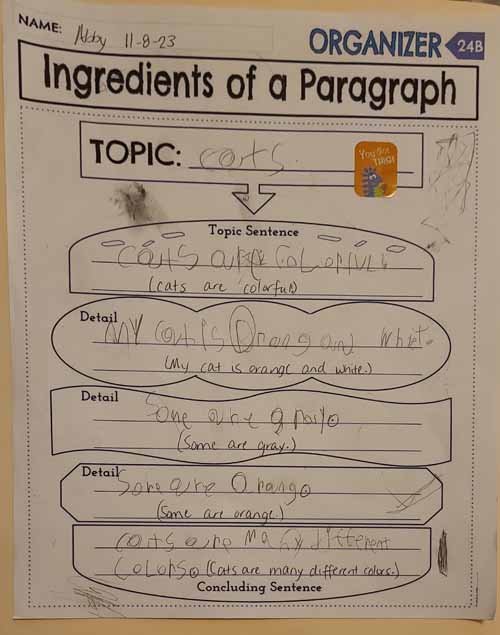 NAME: Abby 11-8-23
ORGANIZER 24B
Ingredients of a Paragraph
TOPIC: cats
YOU GOT THIS!
Topic Sentence
cats are colorful
(cats are colorful)
Detail
MY cat is Orang and whiet.
(My cat is orange and white.)
Detail
Some are gray.
(Some are gray.)
Detail
Some are Orange
(Some are orange.)
cats are many different
colors. (Cats are many different colors.)
Concluding Sentence